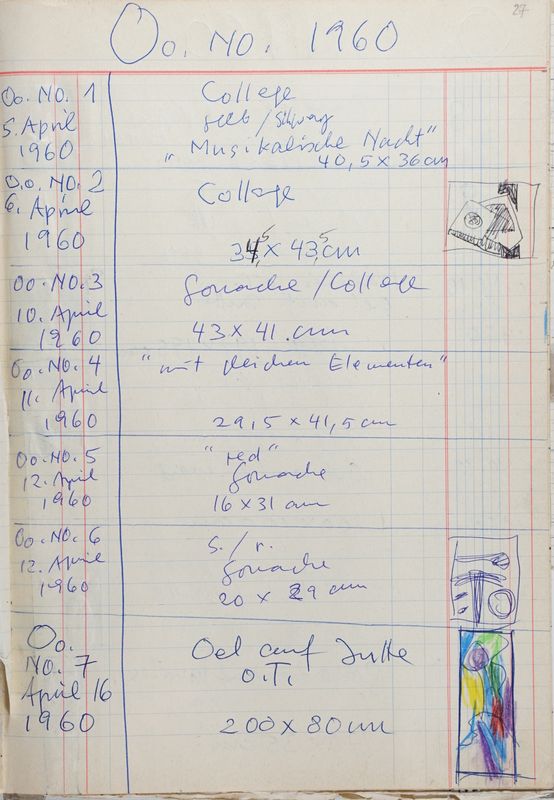 27
Oo. NO. 1960
Oo. NO. 1
5. April
1960
College
gelb/Schwarz
„Musikalische Nacht"
40,5 x 36 cm
O.o. NO. 2
6. April
1960
College
34,5 x 43,5 cm
Oo. NO. 3
10. April
1960
Gouache / College
43 x 41 cm
Oo. NO. 4
11. April
1960
"mit gleichen Elementen"
29,5 x 41,5 cm
Oo. NO. 5
12. April
1960
"red"
Gouache
16 x 31 cm
Oo. NO. 6
12. April
1960
s. / r.
Gouache
20 x 29 cm
Oo.
NO. 7
April 16
1960
Oel auf Jutte
O.T.
200 x 80 cm